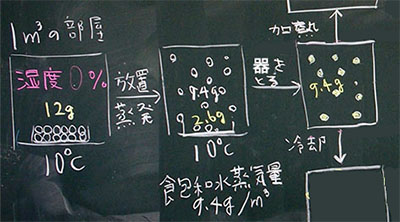 1m³の部屋
湿度0%
12g
10℃
放置
蒸発
9.4g
2.6g
10℃
飽和水蒸気量
9.4g/m³
器を
とる
加熱
9.4g
冷却